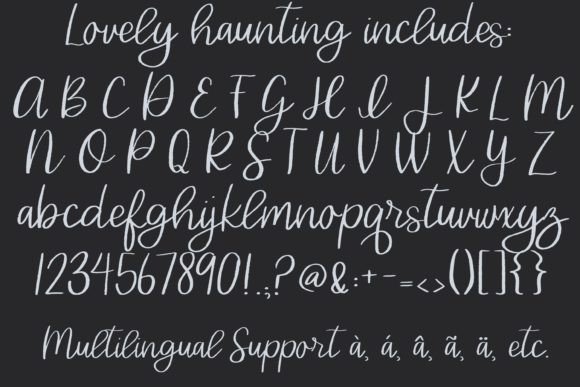 Lovely haunting includes:
A B C D E F G H I J K L M
N O P Q R S T U V W X Y Z
abcdefghijklmnopqrstuvwxyz
1234567890!.,;?@&:+-=<>()[]{}
Multilingual Support à, á, â, ã, ä, etc.